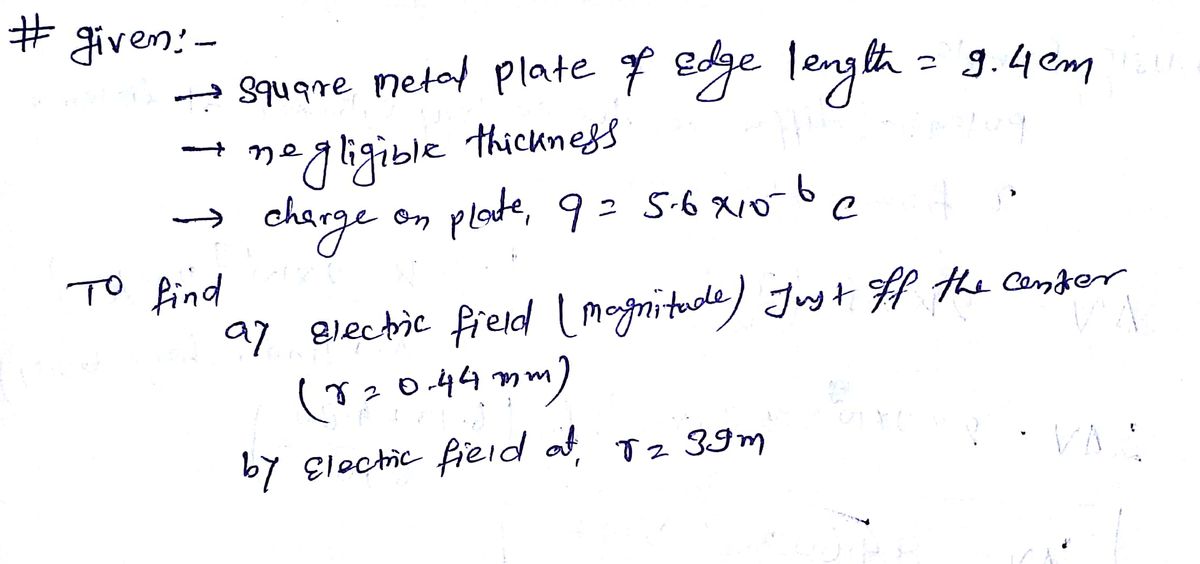 # given:-
→ square metal plate of edge length = 9.4cm
→ negligible thickness
→ charge on plate, q = 5.6 x10⁻⁶ C
To find
a) Electric field (magnitude) Just off the center
(r = 0.44 mm)
b) Electric field at, r = 39m